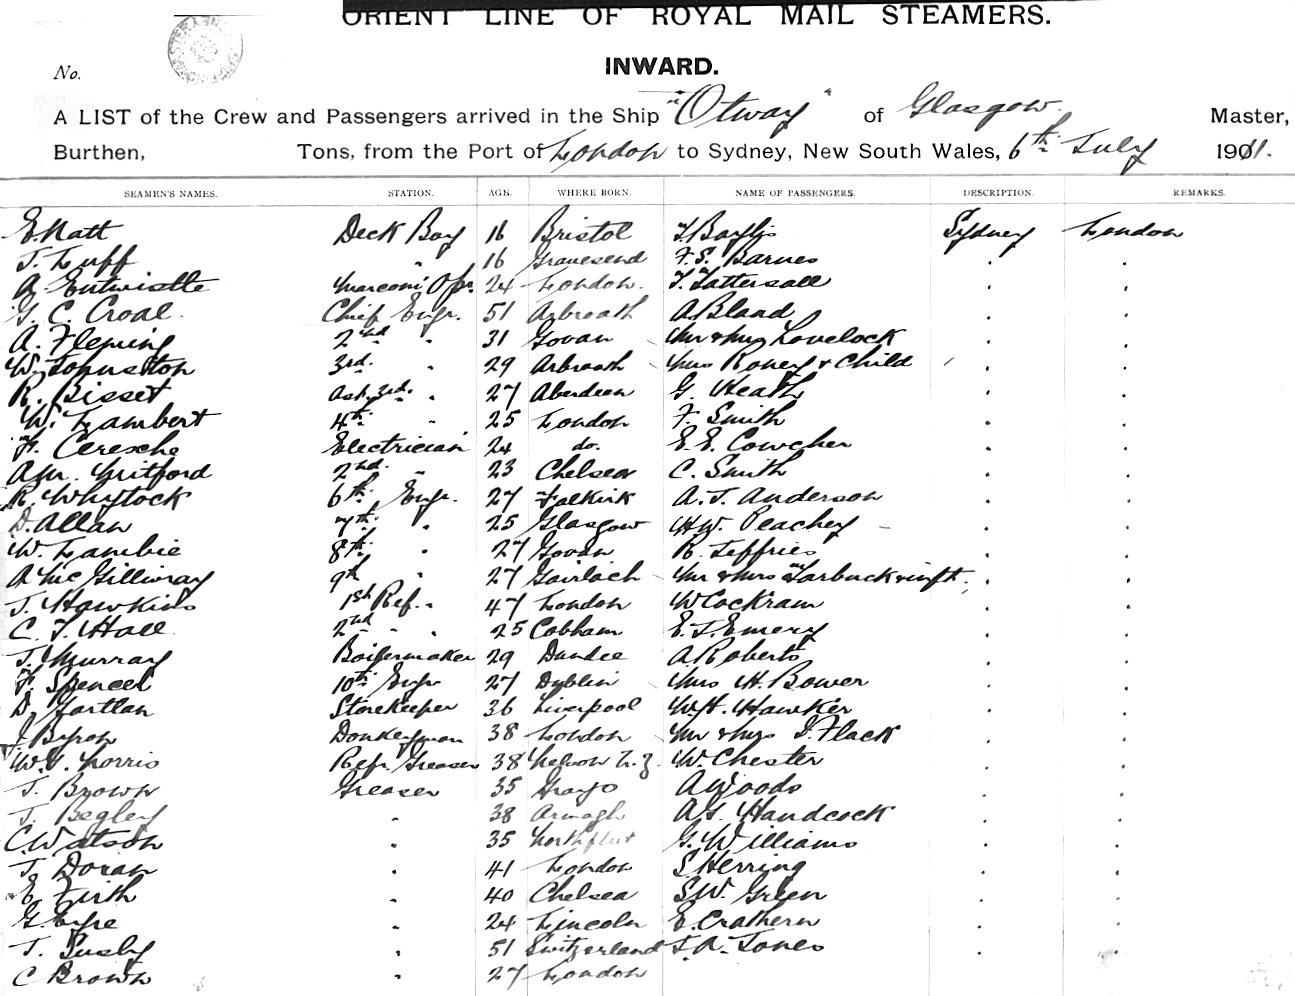 ORIENT LINE OF ROYAL MAIL STEAMERS.
INWARD.
No.
A LIST of the Crew and Passengers arrived in the Ship "Otway" of Glasgow Master,
Burthen, Tons, from the Port of London to Sydney, New South Wales, 6th July 1911.
SEAMEN'S NAMES. STATION. AGE. WHERE BORN. NAME OF PASSENGERS. DESCRIPTION. REMARKS.
E. Natt Deck Boy 16 Bristol T. Baylis Sydney London
J. Luff " 16 Gravesend F. S. Barnes . .
A. Entwistle Marconi Opr. 24 London. T. Tattersall . .
G. C. Croal. Chief Engr. 51 Arbroath A. Bland . .
A. Fleming 2nd " 31 Govan Mr & Mrs Lovelock . .
W. Johnston 3rd. " 29 Arbroath Mrs Roney & Child . .
R. Bisset Asst. 3rd. " 27 Aberdeen G. Heath . .
W. Lambert 4th " 25 London F. Smith . .
F. Ceresche Electrician 24 do. E. E. Cowcher . .
A. M. Mitford 2nd. " 23 Chelsea C. Smith . .
R. Whytock 6th. Engr. 27 Falkirk A. J. Anderson . .
D. Allan 7th. " 25 Glasgow H. W. Peachey . .
W. Lambie 8th. " 27 Govan R. Jeffries . .
A McGillivray 9th " 27 Gairloch Mr & Mrs Tarbuck & inft. . .
J. Hawkins 1st Ref. " 47 London W Cockram . .
C. J. Hall. 2nd " " 25 Cobham E. J. Emery . .
J. Murray Boilermaker 29 Dundee A Roberts . .
F. Spencer 10th Engr 27 Dublin Mrs H. Bower . .
D. Fartlan Storekeeper 36 Liverpool W. H. Hawker . .
J Byron Donkeyman 38 London Mr & Mrs J. Flack . .
W. G. Norris Refr. Greaser 38 Nelson N. Z. W. Chester . .
J. Brown Greaser 35 Grays A Woods . .
J. Begley " 38 Armagh A. G. Handcock . .
C. Watson " 35 Northfleet G. Williams . .
J. Doran " 41 London S Herring . .
E. Firth " 40 Chelsea S. W. Green . .
G. Eyre " 24 Lincoln E. Crathern . .
J. " 51 Switzerland J. A. Jones . .
C Brown " 27 London